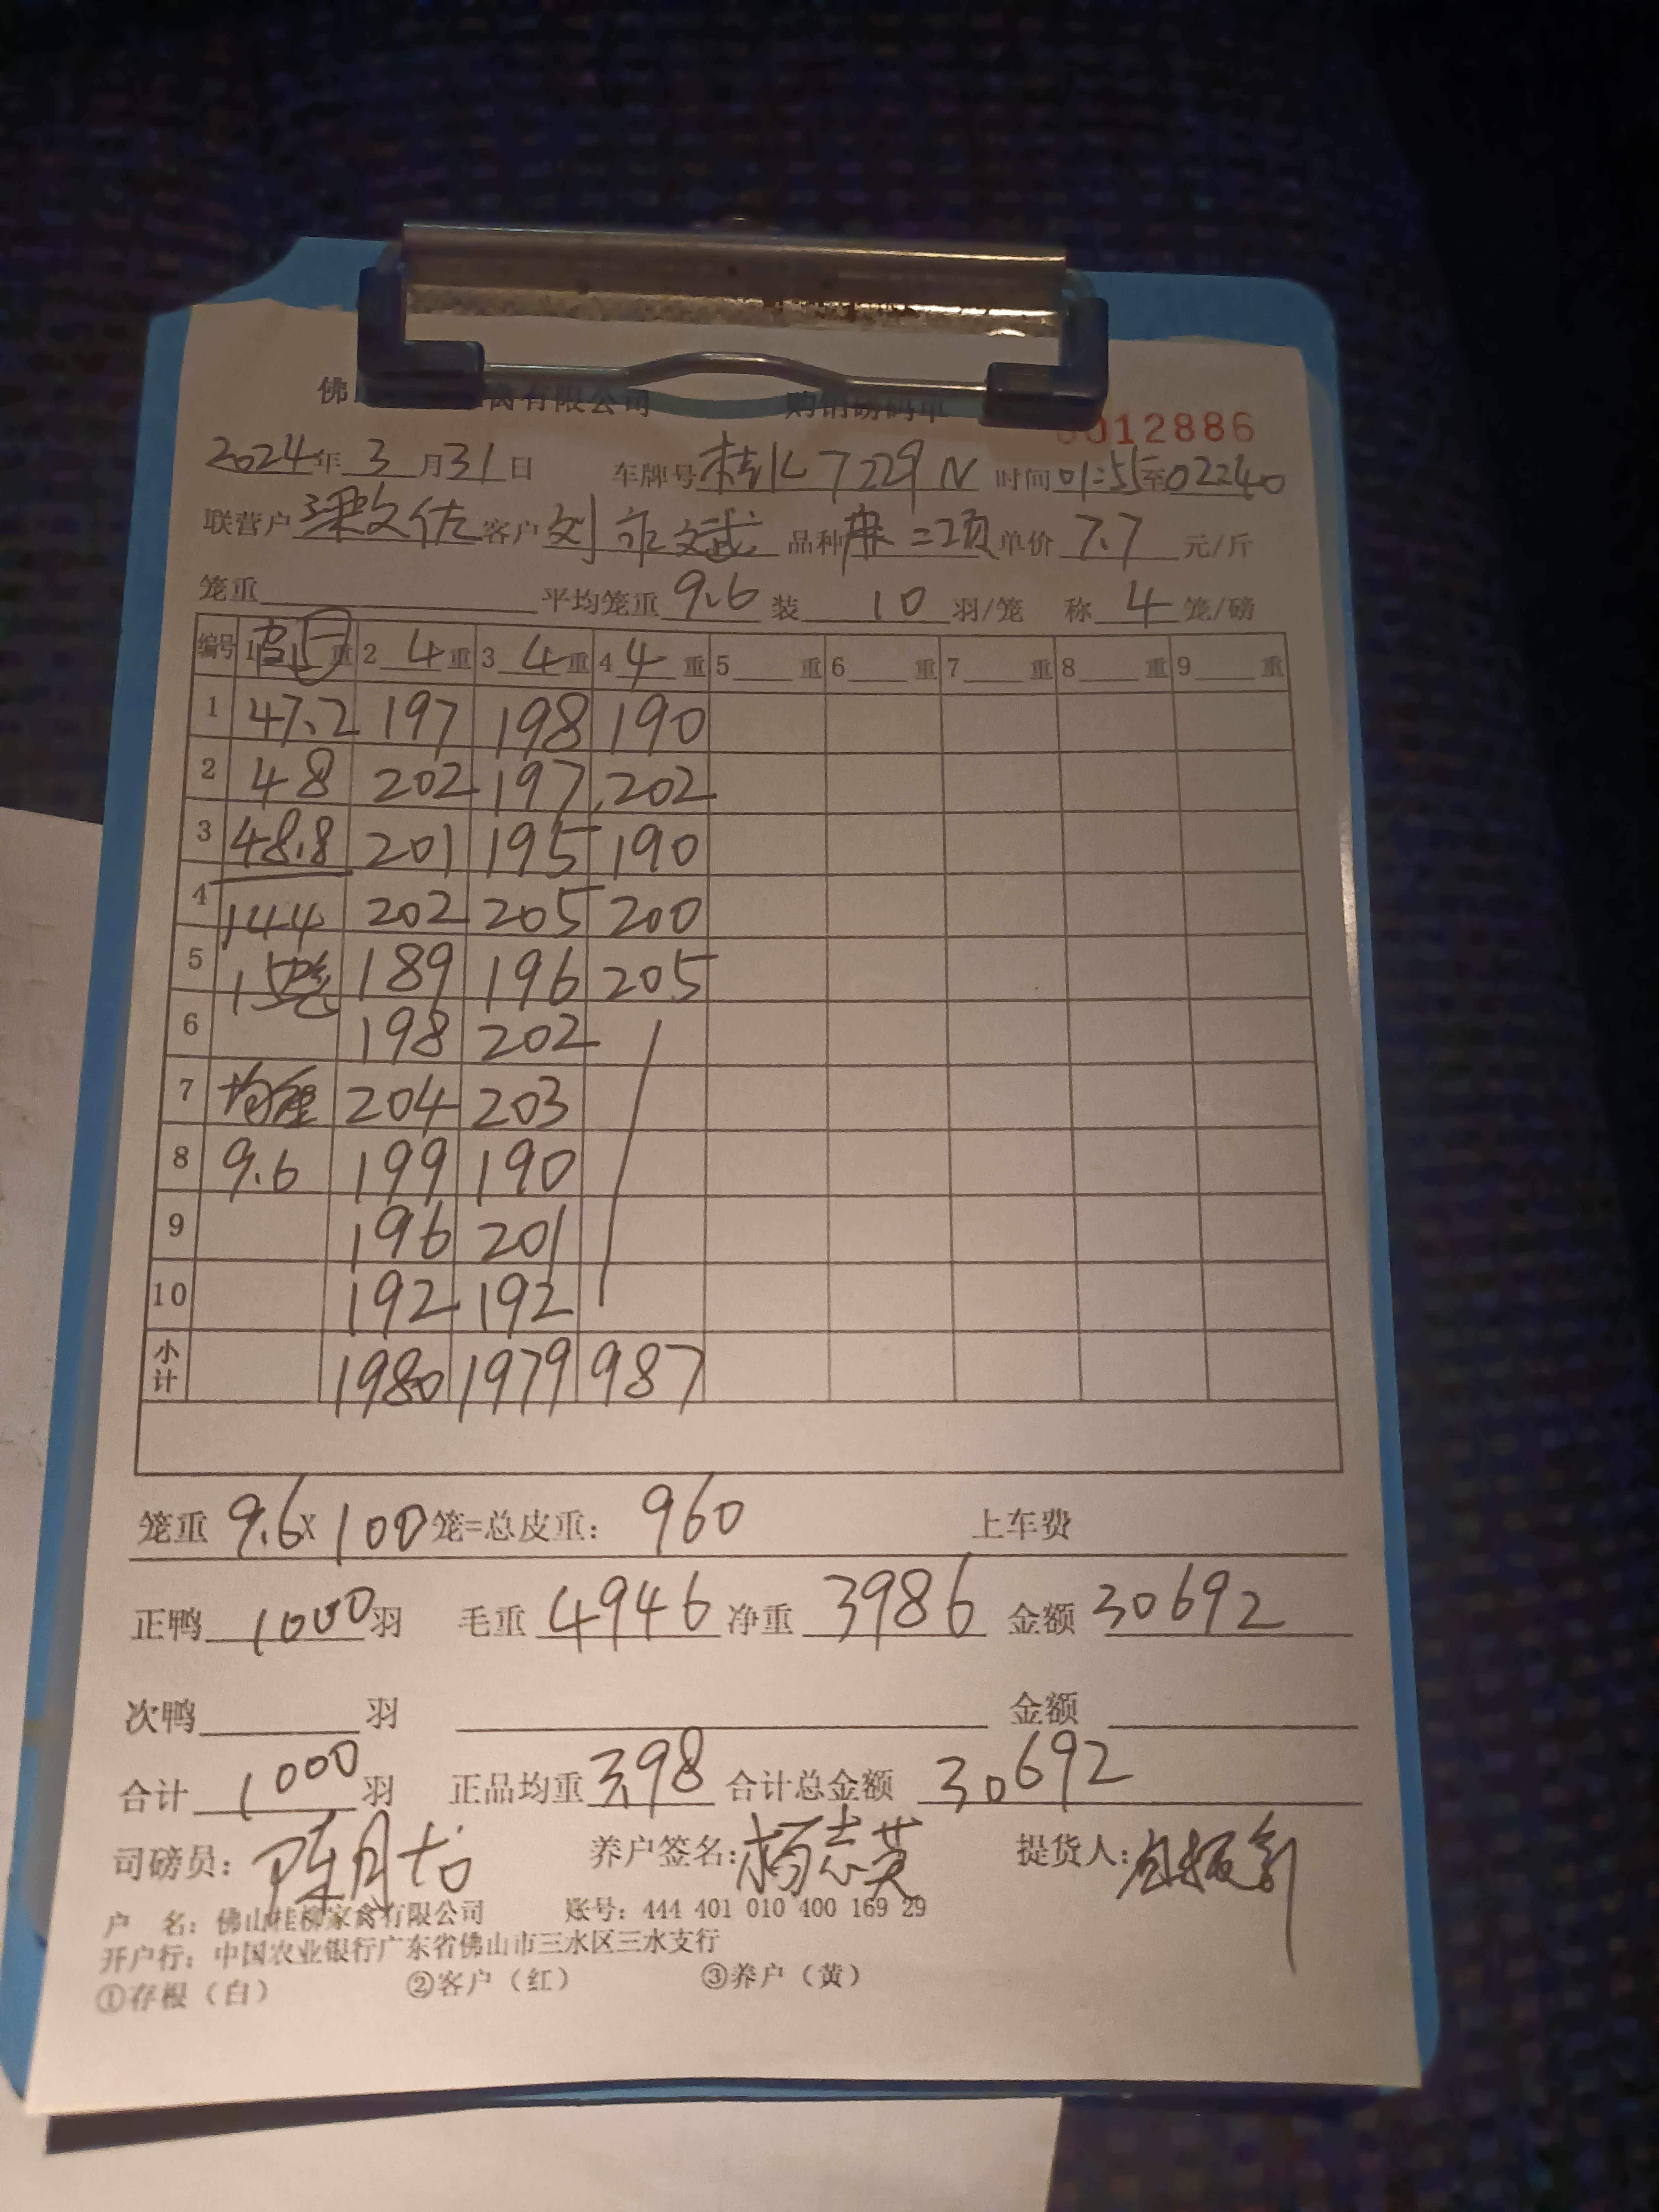 佛山 禽有限公司 购销磅码单
012886
2024年3月31日 车牌号桂K7229N 时间01:55至02:40
联营户梁文佐 客户刘 文斌 品种麻二项 单价7.7元/斤
笼重 平均笼重9.6 装10羽/笼 称4笼/磅
编号 1 重 2 4重 3 4重 4 4重 5 重 6 重 7 重 8 重 9 重
1 47.2 197 198 190
2 48 202 197 202
3 48.8 201 195 190
4 144 202 205 200
5 15笼 189 196 205
6 198 202
7 均重 204 203
8 9.6 199 190
9 196 201
10 192 192
小计 1980 1979 987
笼重9.6x100笼=总皮重：960 上车费
正鸭1000羽 毛重4946 净重3986 金额30692
次鸭 羽 金额
合计1000羽 正品均重3.98 合计总金额30692
司磅员：陈月 养户签名：杨志英 提货人：
户 名：佛山桂柳家禽有限公司 账号：444 401 010 400 169 29
开户行：中国农业银行广东省佛山市三水区三水支行
①存根（白） ②客户（红） ③养户（黄）